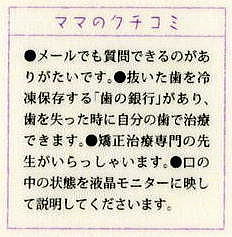 ママのクチコミ
●メールでも質問できるのがあ
りがたいです。●抜いた歯を冷
凍保存する「歯の銀行」があり、
歯を失った時に自分の歯で治療
できます。●矯正治療専門の先
生がいらっしゃいます。●口の
中の状態を液晶モニターに映し
て説明してくださいます。